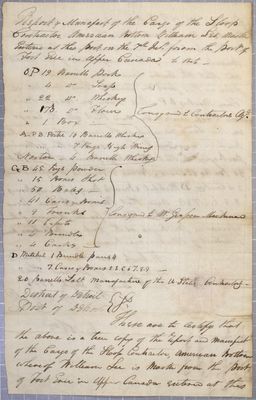 Report & Manifest of the Cargo of the Sloop
Contractor American Bottom William Lee Master
entered at this Port on the 7th from the Port of
Fort Erie in Upper Canada to wit
O P 19 Barrels Pork
" 4 " Soap
" 22 " Whiskey
" " Flour
" 1 Box
Consigned to Contractors Agt.
10 Barrels Whiskey
7 Kegs High Wines
4 Barrels Whiskey
G B 45 Kegs Powder
" 15 Boxes Shot
" 50 Bales
" 41 Cases & Boxes
" 9 Trunks
" 5 Bundles
" 4 Casks
Consigned to
D Mitchel 1 Bundle
" 7 Cases & Boxes
20 Barrells Salt Manufacture of the U States
District of Detroit
Port of Detroit
These are to certify that
the above is a true copy of the Report and manifest
of the Cargo of the Sloop Contractor American Bottom
whereof William Lee is Master from the Port
of Fort Erie in Upper Canada entered at this